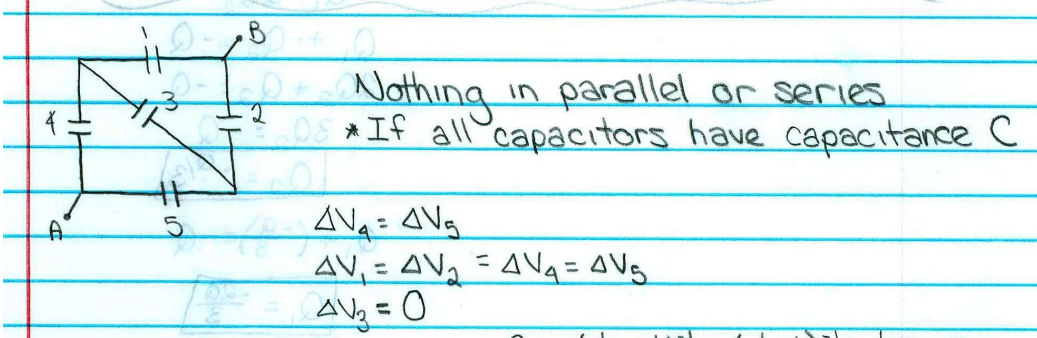 1
B
Nothing in parallel or series
3
4
2
* If all capacitors have capacitance C
A
5
ΔV₄ = ΔV₅
ΔV₁ = ΔV₂ = ΔV₄ = ΔV₅
ΔV₃ = 0